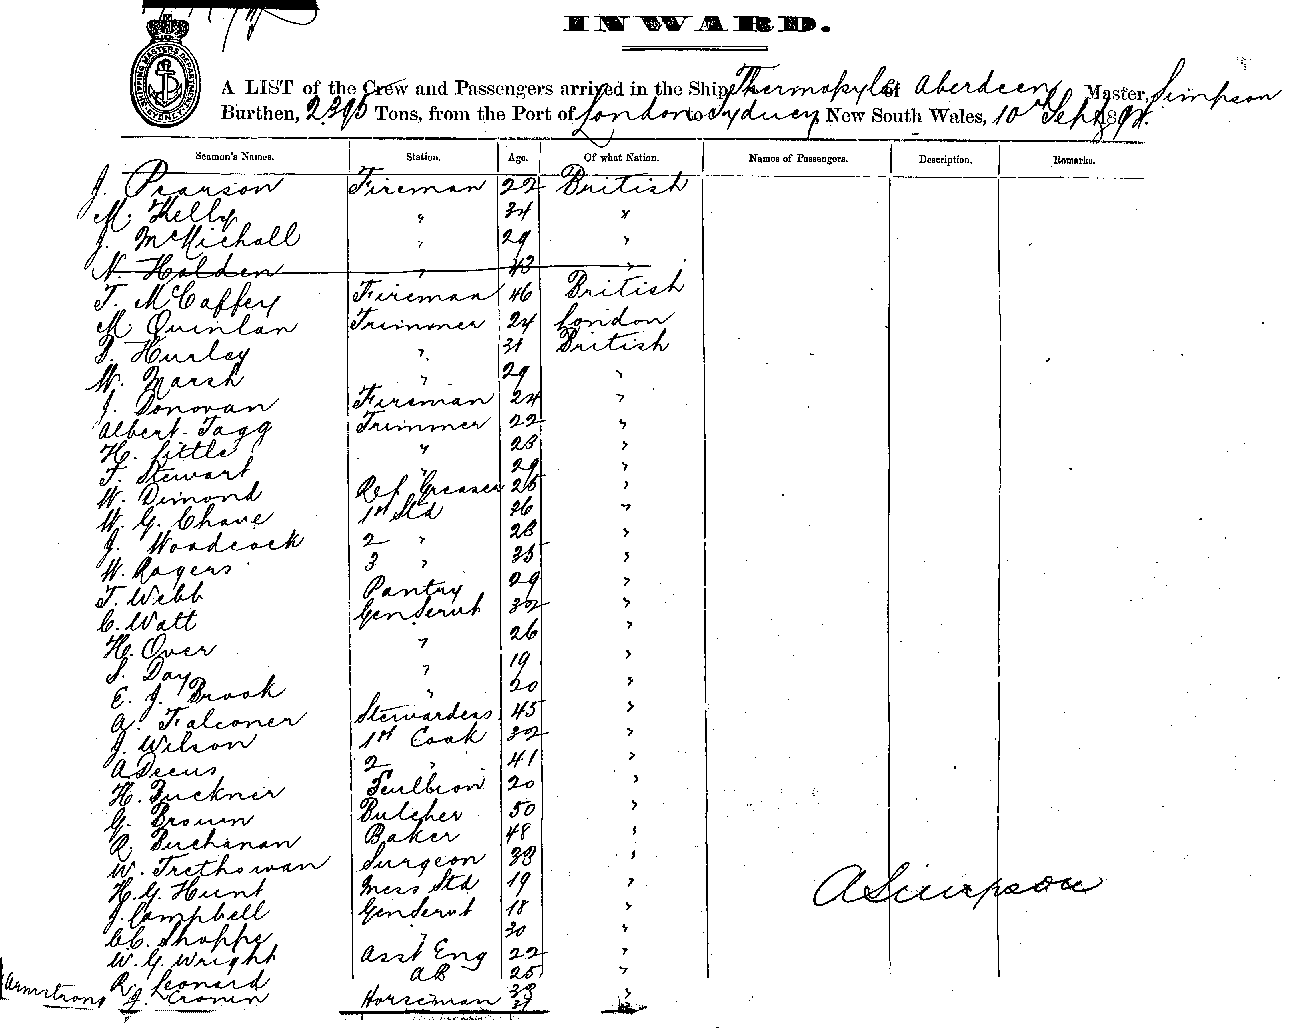 INWARD.
A LIST of the Crew and Passengers arrived in the Ship Thermopylae of Aberdeen, Master, Simpson
Burthen, 2395 Tons, from the Port of London to Sydney, New South Wales, 10th Sept 1892.
Seamen's Names. Station. Age. Of what Nation. Names of Passengers. Description. Remarks.
J. Pearson Fireman 22 British
M. Kelly " 34 "
J. McMichall " 29 "
N. Holden " 43 "
T. McCaffery Fireman 46 British
M Quinlan Trimmer 24 London
D. Hurley " 31 British
W. Marsh " 29 "
J. Donovan Fireman 24 "
Albert Tagg Trimmer 22 "
H. Little " 23 "
F. Stewart " 29 "
W. Dimond Ref Greaser 25 "
W. G. Chave 1st Std 36 "
J. Woodcock 2 " 28 "
W. Rogers 3 " 35 "
T. Webb Pantry 29 "
C. Watt Gen Servt 32 "
H. Over " 26 "
S. Day " 19 "
E. J. Brook " 20 "
A. Falconer Stewardess 45 "
J. Wilson 1st Cook 32 "
A Decus 2 " 41 "
H. Buckner Scullion 20 "
G. Brown Butcher 50 "
R. Buchanan Baker 48 "
W. Trethowan Surgeon 38 "
H. G. Hunt Mess Std 19 "
J. Campbell Gen Servt 18 "
C. Shoppe " 30 "
W. G. Wright Asst Eng 22 "
R. Leonard AB 25 "
J. Cronin Horseman 38 "
Armstrong
A Simpson